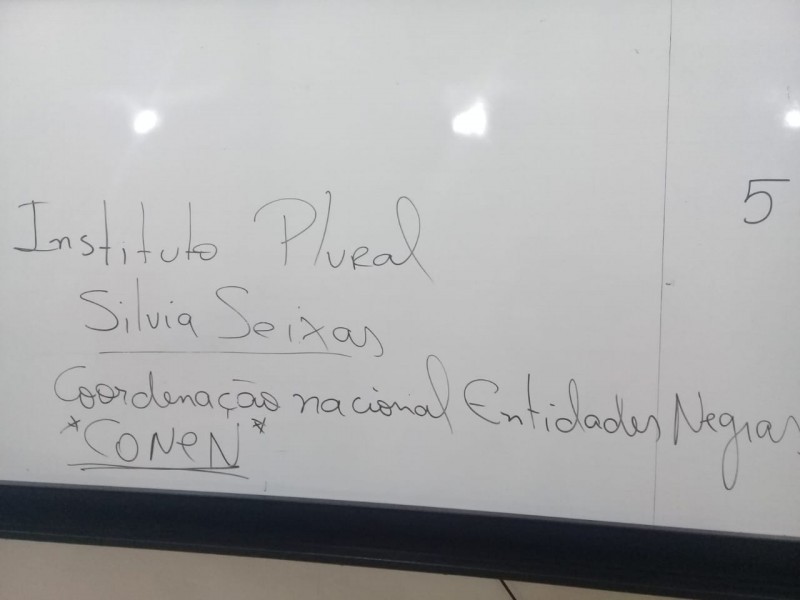 Instituto Plural
5
Silvia Seixas
Coordenação nacional Entidades Negras
*CONEN*